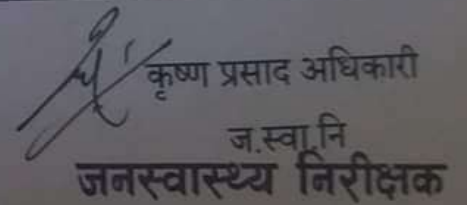 कृष्ण प्रसाद अधिकारी
ज.स्वा.नि
जनस्वास्थ्य निरीक्षक